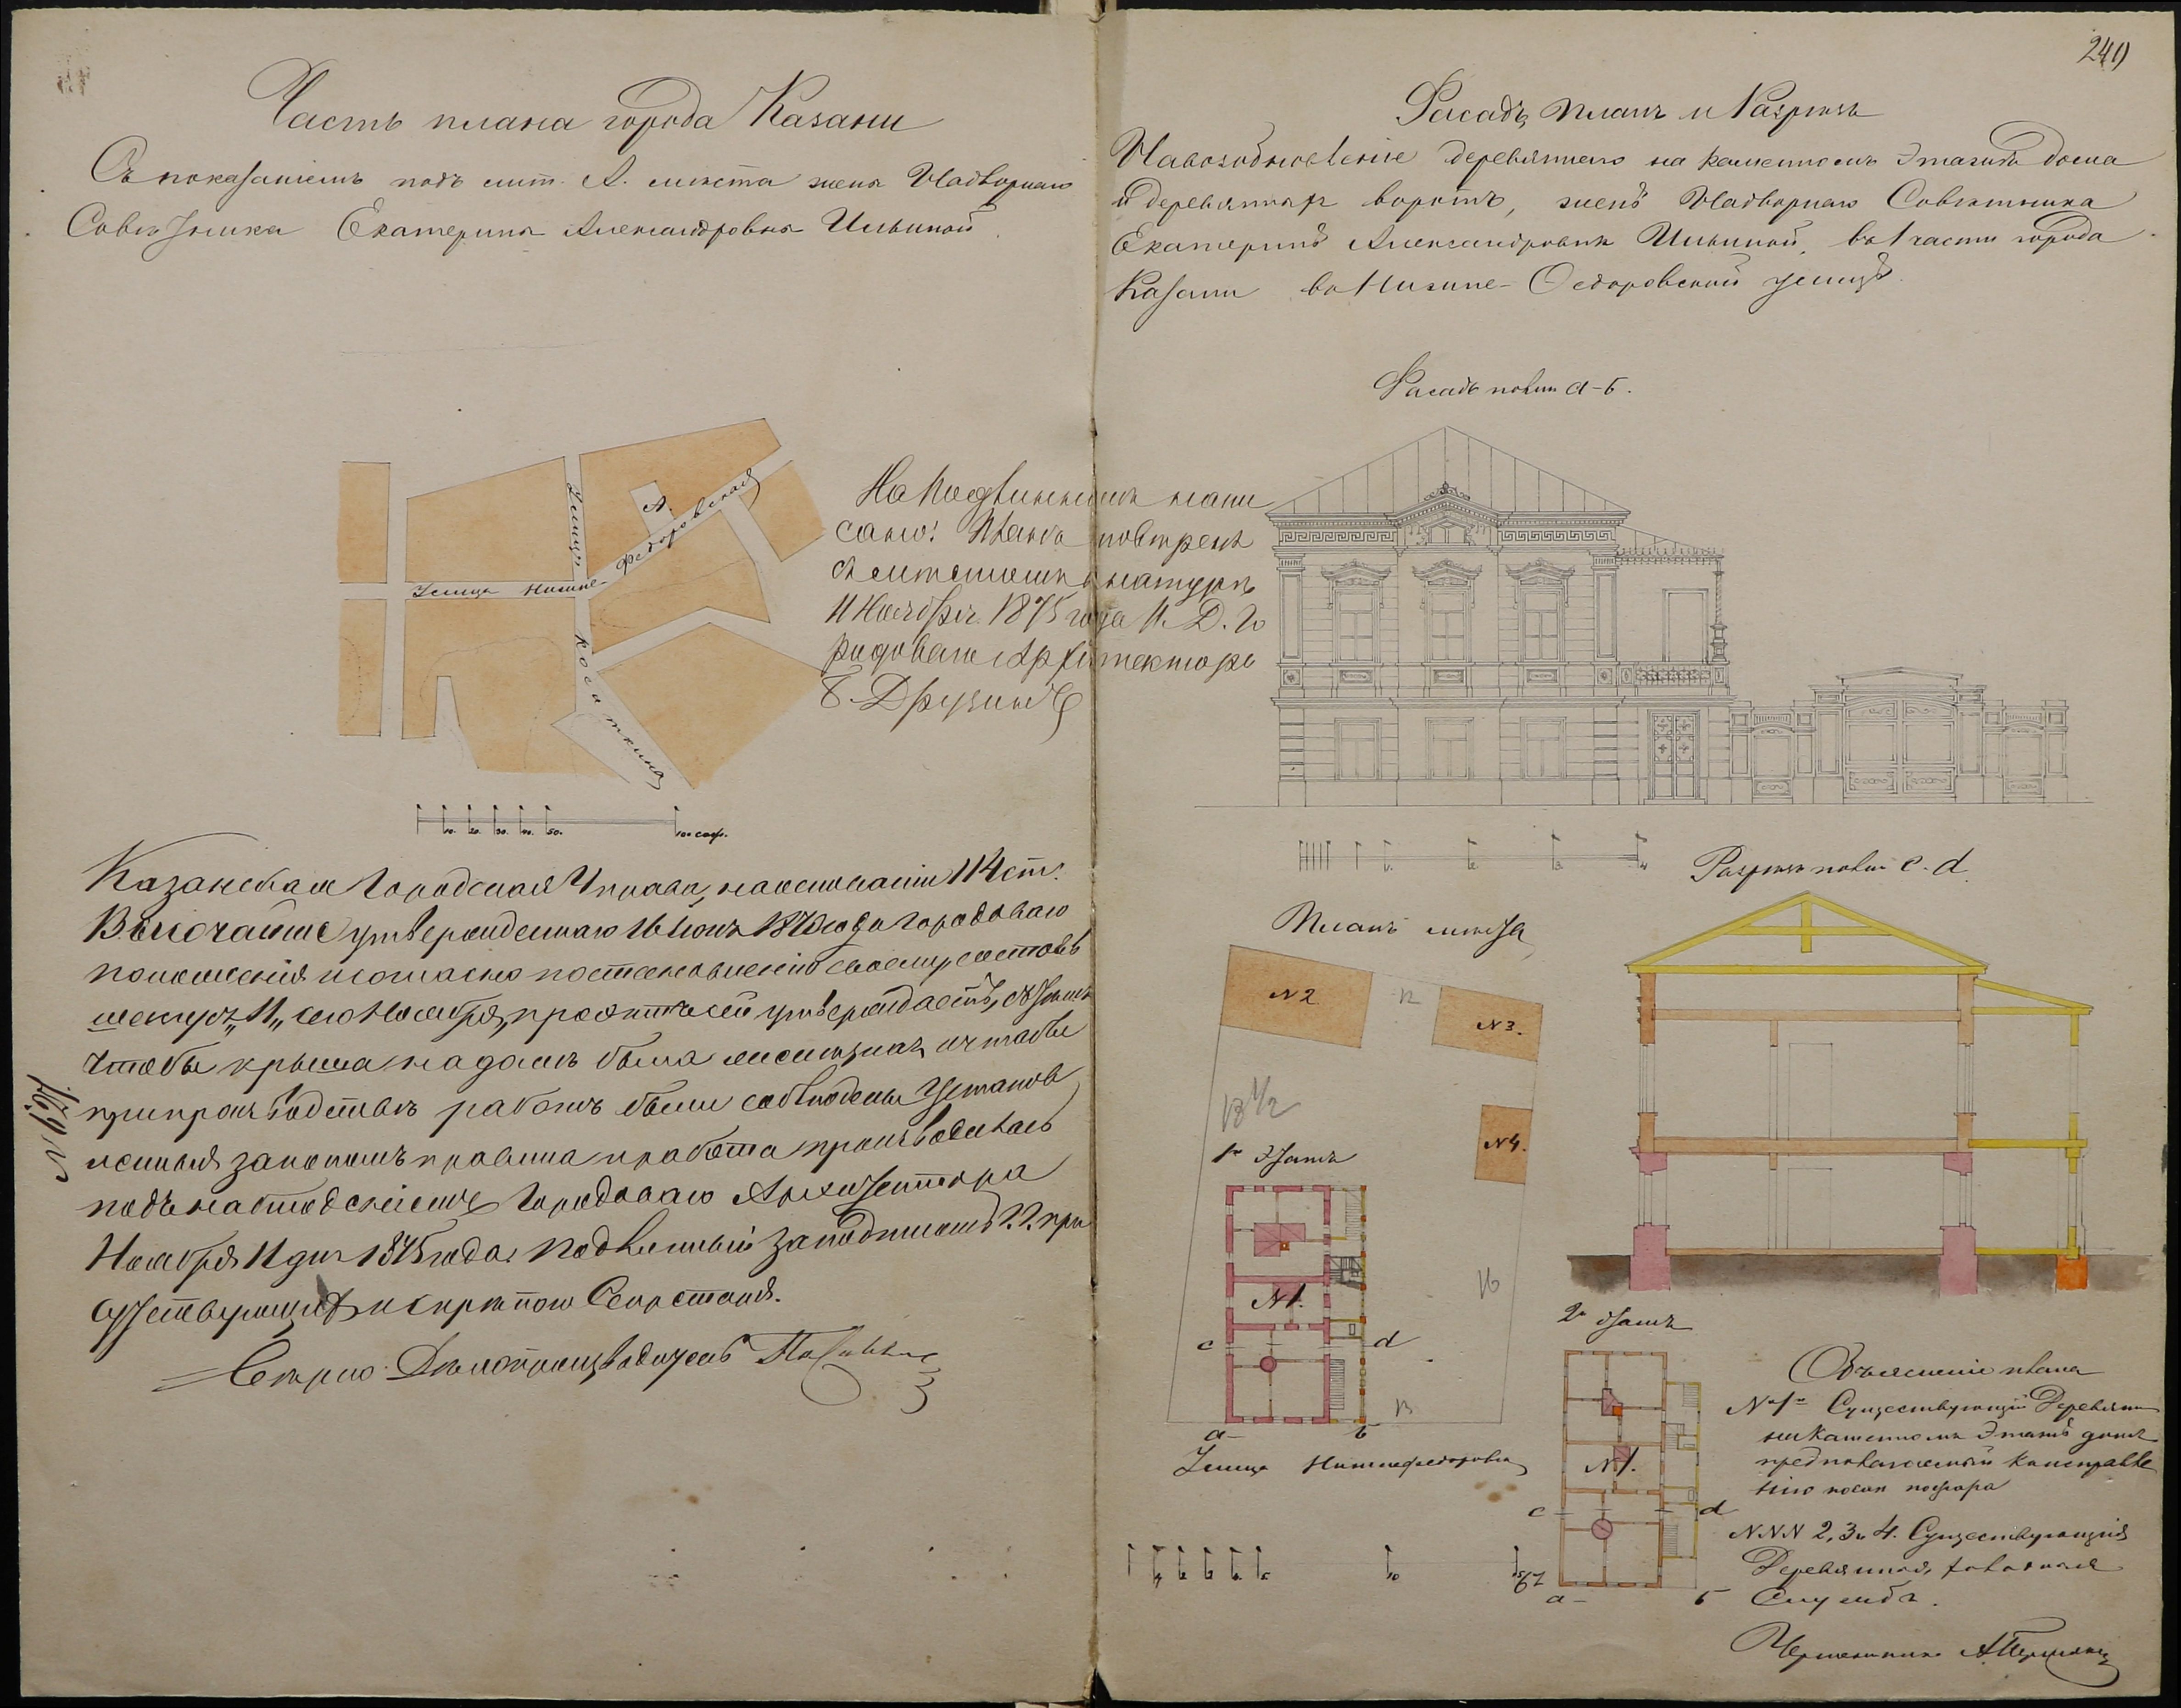 Часть плана города Казани
Съ показаніемъ подъ лит. А. места жены Надворнаго
Советника Екатерины Александровны Ильиной
А.
Улица
Улица Нижне-Федоровская
Косаткина
10. 20. 30. 40. 50. 100 саж.
На подлинномъ напи
сано: Планъ поверенъ
съ местомъ въ натуре
11 Ноября 1875 года И. Д. Го
родоваго Архитектора
Казанская Городская Управа, на основаніи 114 ст.
Высочайше утвержденнаго 16 Іюня 1870 года Городоваго
положенія и согласно постановленію своему, состояв
шемуся „11„ сего Ноября, проэктъ сей утверждаетъ, съ тѣмъ
чтобы крыша на доме была железная и чтобы
при производстве работъ были соблюдены установ
ленныя закономъ правила и работа производилась
подъ наблюденіемъ Городоваго Архитектора
Ноября 11 дня 1875 года. Подлинный за подписомъ Г.Г. при
сутствующихъ и скрепою Секретаря.
Верно: Делопроизводитель
240
Фасадъ, планъ и Разрезъ
На возобновленіе деревяннаго на каменномъ этаже дома
и деревянныхъ воротъ, жене Надворнаго Советника
Екатерине Александровне Ильиной, въ 1 части города
Казани въ Нижне-Федоровской улице.
Фасадъ по лин. а-б.
Разрезъ по лин. c. d.
Планъ места
N 2
12
N 3.
13 1/2
N 4.
1й Этажъ
N 1.
16
c
d
13
а
б
Улица Нижнефедоровская
2й Этажъ
N 1.
c
d
а
б
Объясненіе плана
N 1й Существующій Деревян.
на Каменномъ Этаже домъ
предполагаемый къ исправле
нію после пожара
N.N.N 2, 3 и 4. Существующія
Деревянныя, холодныя
Службы.
Чертежникъ